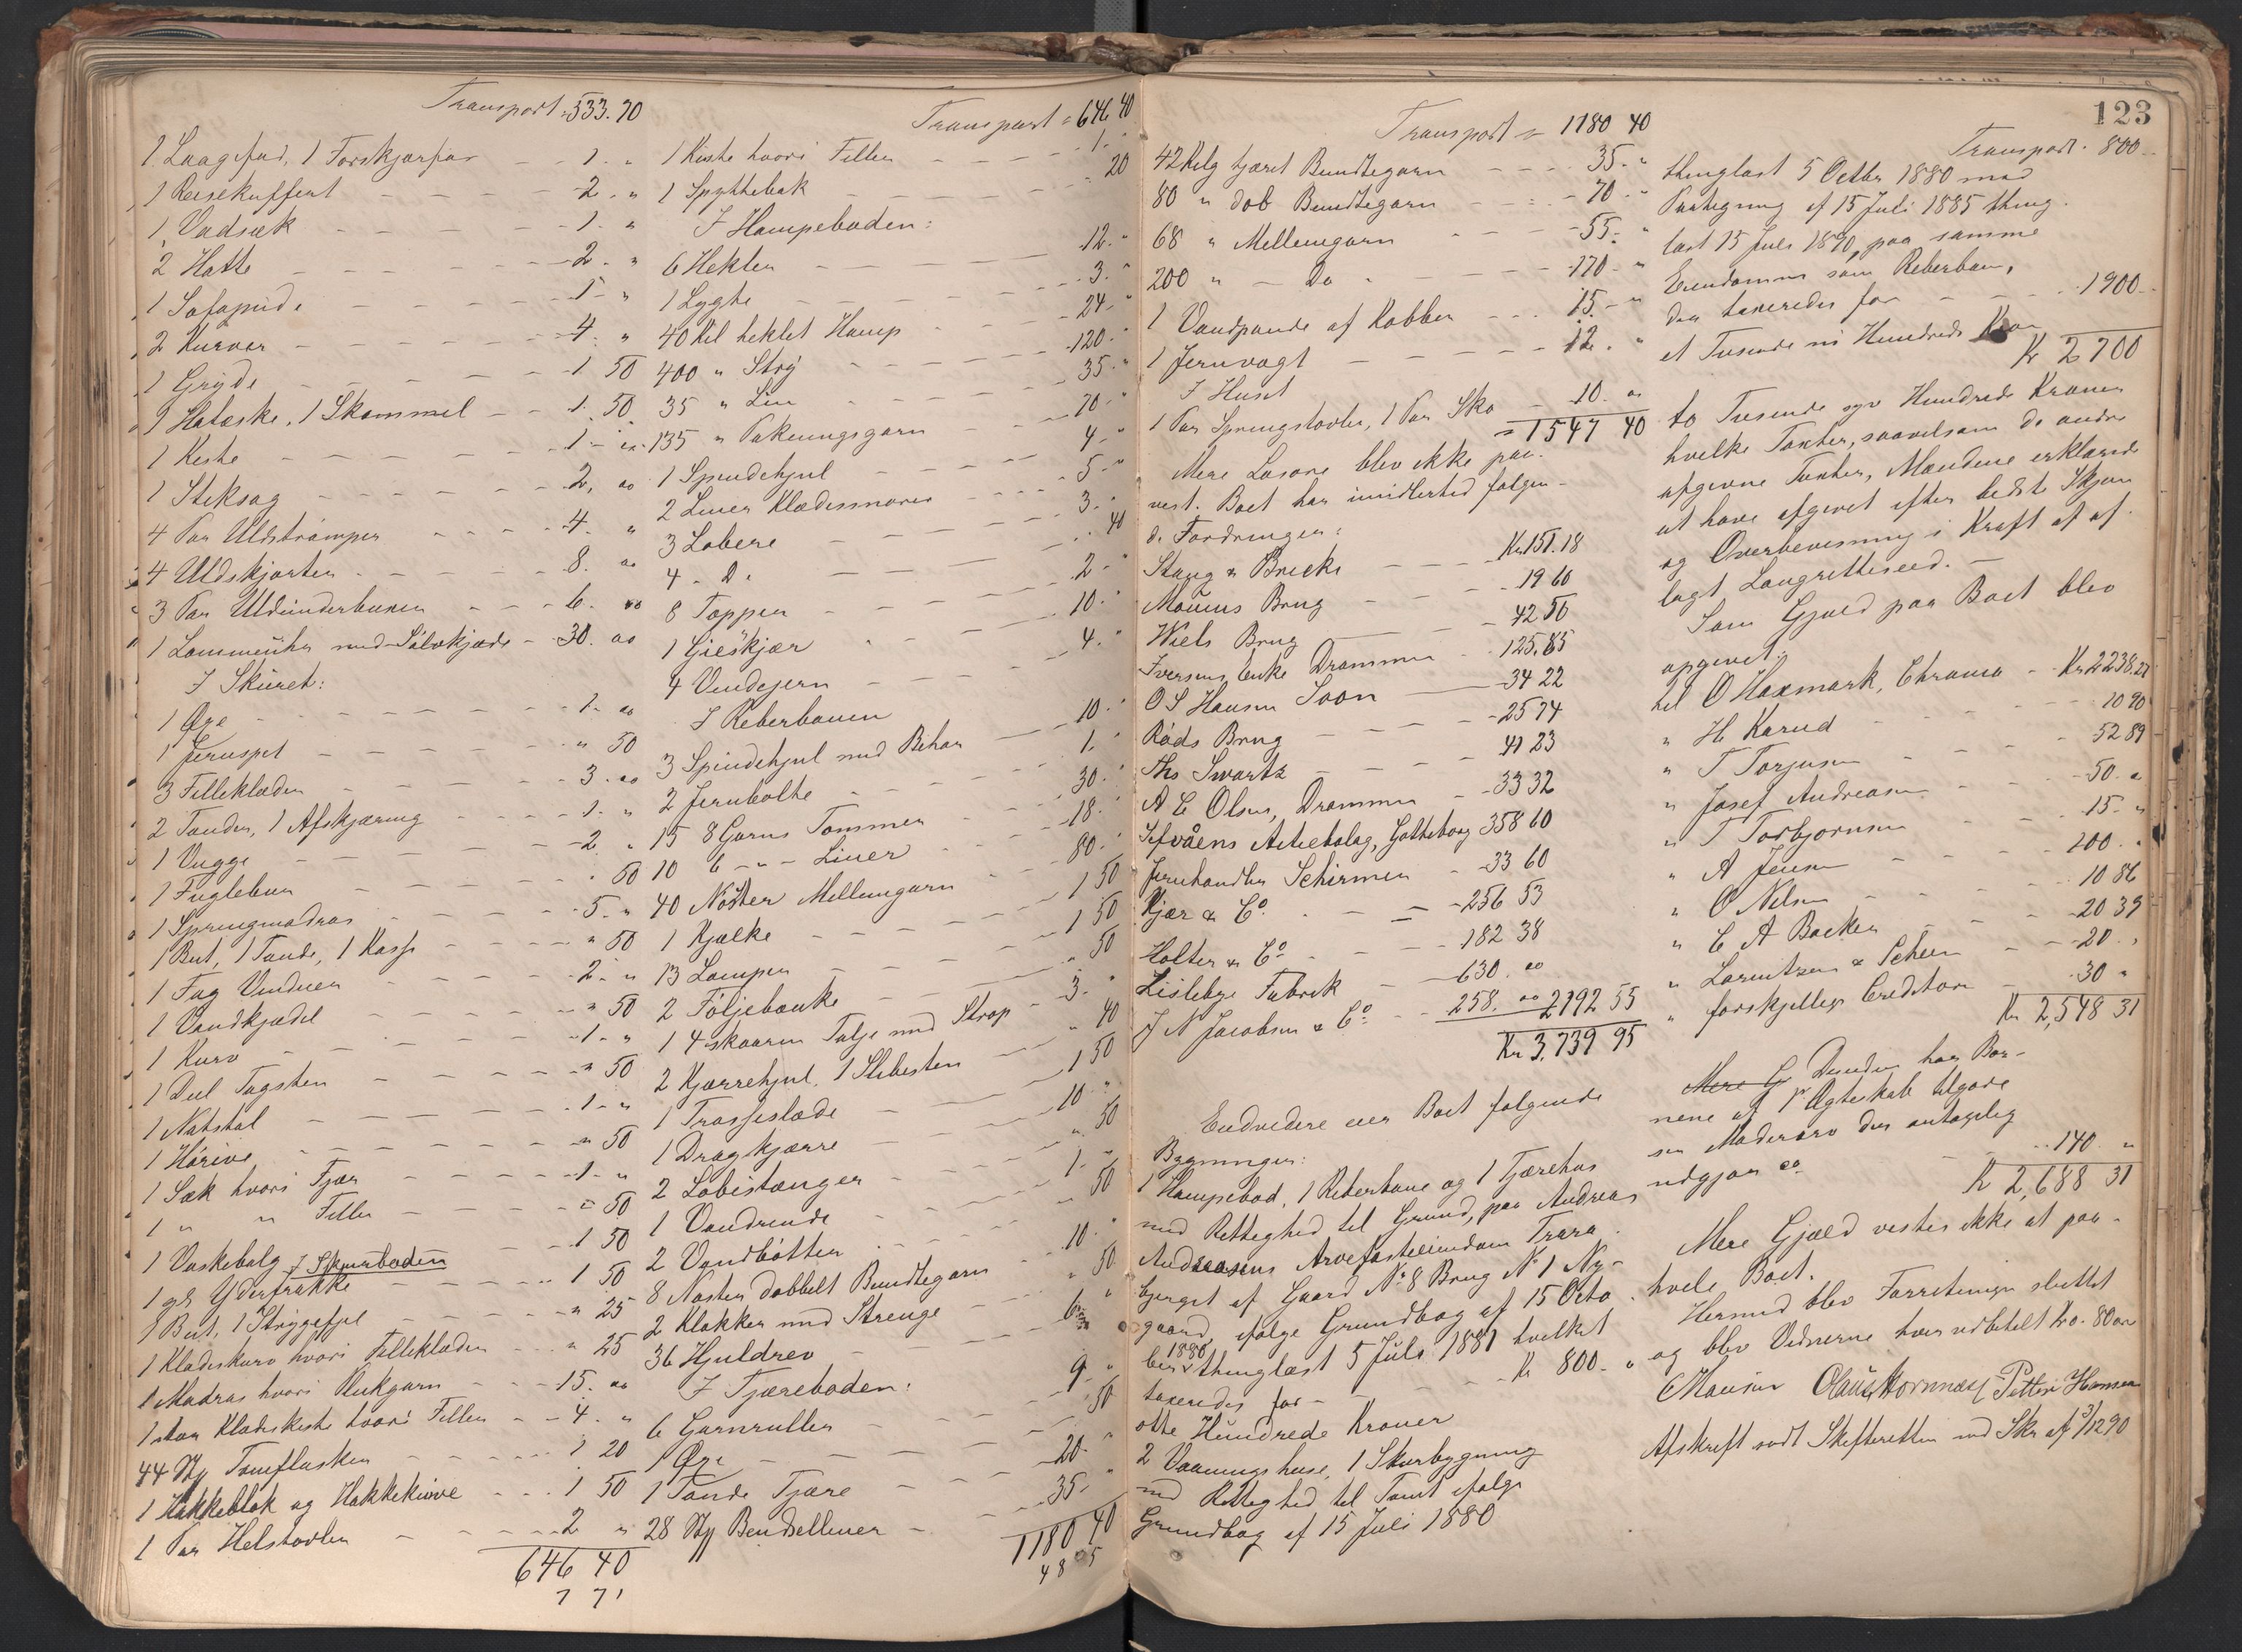 Transport = 533.70
1 Laagefad, 1 Torskjærfad - - 1. "
1 Reisekuffert - - - 2. "
1 Vadsæk - - - 1. "
2 Hatte - - - 2. "
1 Sofapude - - - 1 - "
2 Kurver - - - 4. "
1 Gryde - - - 1 50
1 Hatæske, 1 Skammel - - 1. 50
1 Kiste - - - 1 - "
1 Stiksag - - - 2, "
4 Par Uldstrømper - - - 4. "
4 Uldskjorter - - - 8. "
3 Par Uldunderbuxer - - - 6. "
1 Lommeuhr med Sølvkjæde - 30. "
I Skuret:
1 Øxe - - - 1. "
1 Jernspet - - - " 50
3 Filleklæder - - - 3. "
2 Tønder, 1 Afskjæring - - 1. "
1 Vugge - - - 2 "
1 Fuglebur - - - " 50
1 Springmadras - - - 5. "
1 But, 1 Tønde, 1 Kasse - - - " 50
1 Fag Vinduer - - - 2. "
1 Vandkjedel - - - " 50
1 Kurv - - - 1. "
1 Del Tagsten - - - " 50
1 Natstol - - - 1. "
1 Hørive - - - " 50
1 Sæk hvori Fjær - - - 1. "
1 " " Filler - - - " 50
1 Vaskebalg - - 1 50
I Skuurboden
1 gl Yderfrakke - - 1 50
1 But, 1 Strygefjel - - - " 25
1 Klædeskurv hvori Filleklæder - - " 25
1 Madras hvori Plukgarn - - 15. "
1 stor Klædeskiste hvori Filler - - 4. "
44 Stk Tomflasker - - - 1 20
1 Hakkeblok og Hakkeknive - - - 1 50
1 Par Helstøvler - - - 2 "
646 40
7 71
Transport = 646 40
1 Kiste hvori Filler - - - 1. "
1 Spyttebak - - - " 20
I Hampeboden:
6 Hekler - - - 12. "
1 Lygte - - - 3. "
40 Kil heklet Hamp - - - 24. "
400 " Stry - - - 120. "
35 " Lin - - - 35 "
135 " Pakningsgarn - - - 70. "
1 Spindehjul - - - 4. "
2 Liner Klædessnorer - - - 5. "
3 Løbere - - - 3. "
4 - D. - - - " 40
8 Topper - - - 2 - "
1 Gieskjær - - - 10. "
4 Vendejern - - - 4. "
I Reberbanen
3 Spindehjul med Behør - - 10. "
2 Jernbolte - - - 1. "
15 8 Garns Tommer - - - 30. "
10 6 - " - Liner - - - 18. "
40 Nøster Mellemgarn - - 80. "
1 Kjælke - - - 1 50
13 Lamper - - - 1 50
2 Føljebænke - - - " 50
1 4 skaaren Talje med Strop - 3. "
2 Kjærrehjul, 1 Slibesten - - " 40
1 Trosseslæde - - - 1 50
1 Dragkjærre - - - 10. "
2 Løbestænger - - - " 50
1 Vandrende - - - 1. "
2 Vandbøtter - - - " 50
8 Nøster dobbelt Bundtegarn - - 10. "
2 Klokker med Strenge - - " 50
36 Hjuldrev - - - 6. "
I Tjæreboden:
6 Garnruller - - - 9. "
1 Øxe - - - " 50
1 Tønde Tjære - - - 20. "
28 Stk Bendselliner - - - 35. "
1180 40
Transport = 1180 40
42 Kilg tjæret Bundtegarn - - - 35. "
80 " dob Bundtegarn - - - 70. "
68 " Mellemgarn - - - 55. "
200 " - Do - - - 170. "
1 Vandpande af Kobber - - - 15. "
1 Jernvægt - - - 12. "
I Huset
1 Par Springstøvler, 1 Par Sko - 10. "
= 1547 40
Mere Løsøre blev ikke paa-
vist. Boet har imidlertid følgen-
de Fordringer:
Stang & Bricks - - - Kr. 151.18
Monius Brug - - - 19 60
Wiels Brug - - - 42 50
Iversens Enke Drammen - - 125.85
O S Hansen Soon - - - 34 22
Røds Brug - - - 25 74
Ths Swartz - - - 41 23
A C Olsen, Drammen - - 33 32
Sefvåens Actiebolag, Gotheborg 358 60
Jernhandler Schirmer - 33 60
Kjær & Co. - - - 256 53
Holter & Co - - - 182 38
Lisleby Fabrik - - 630. "
J N Jacobsen & Co. - - 258. " 2192 55
Kr 3,739 95
Endvidere eier Boet følgende
Bygninger:
1 Hampebod, 1 Reberbane og 1 Tjærehus
med Rettighed til Grund, paa Andreas
Andreasens Arvefæsteeiendom Trara
bjerget af Gaard No 8 Brug No 1 Ny-
gaard, ifølge Grundbog af 15 Octo
ber 1880 thinglæst 5 Juli 1881 hvilket
taxeredes for - - - Kr 800. "
otte Hundrede Kroner
2 Vaaningshuse, 1 Skurbygning
med Rettighed til Tomt ifølge
Grundbog af 15 Juli 1880
123
Transport. 800
thinglæst 5 Octbr 1880 med
Paategning af 15 Juli 1885 thing-
læst 15 Juli 1890, paa samme
Eiendommen som Reberbanen,
den taxeredes for - - - 1900 -
et Tusinde ni Hundrede Kroner
Kr 2700
to Tusinde syv Hundrede Kroner
hvilke Taxter, saavelsom de andre
afgivne Taxter, Mændene erklærede
at have afgivet efter bedste Skjøn
og Overbevisning i Kraft af af-
lagt Laugretteseed. -
Som Gjæld paa Boet blev
opgivet:
til O Haxmark, Chrania - Kr 2238.27
" H Karud - - - 10 90
" T Torjusen - - - 52 89
" Josef Andreasen - - - 50. "
" T Torbjørnsen - - - 15. "
" A Jensen - - - 100. "
" O Nilsen - - - 10 86
" C A Backer - - - 20 39
" Lorentzen & Scheen - - 20. "
" forskjellige Creditorer - 30 "
Kr 2,548 31
Mere G Desuden har Bør-
nene af 1e Ægteskab tilgode
sin Mødrearv der antagelig
udgjør ca - - - 140. "
K 2,688 31
Mere Gjæld vestes ikke at paa-
hvile Boet.
Hermed blev Forretningen sluttet
og blev Vidnerne hver udbetalt Kr 0. 80 øre
C Hansen Olaus Hornnæs Petter Hansen
Afskrift sendt Skifteretten med Skr af 3/12 90